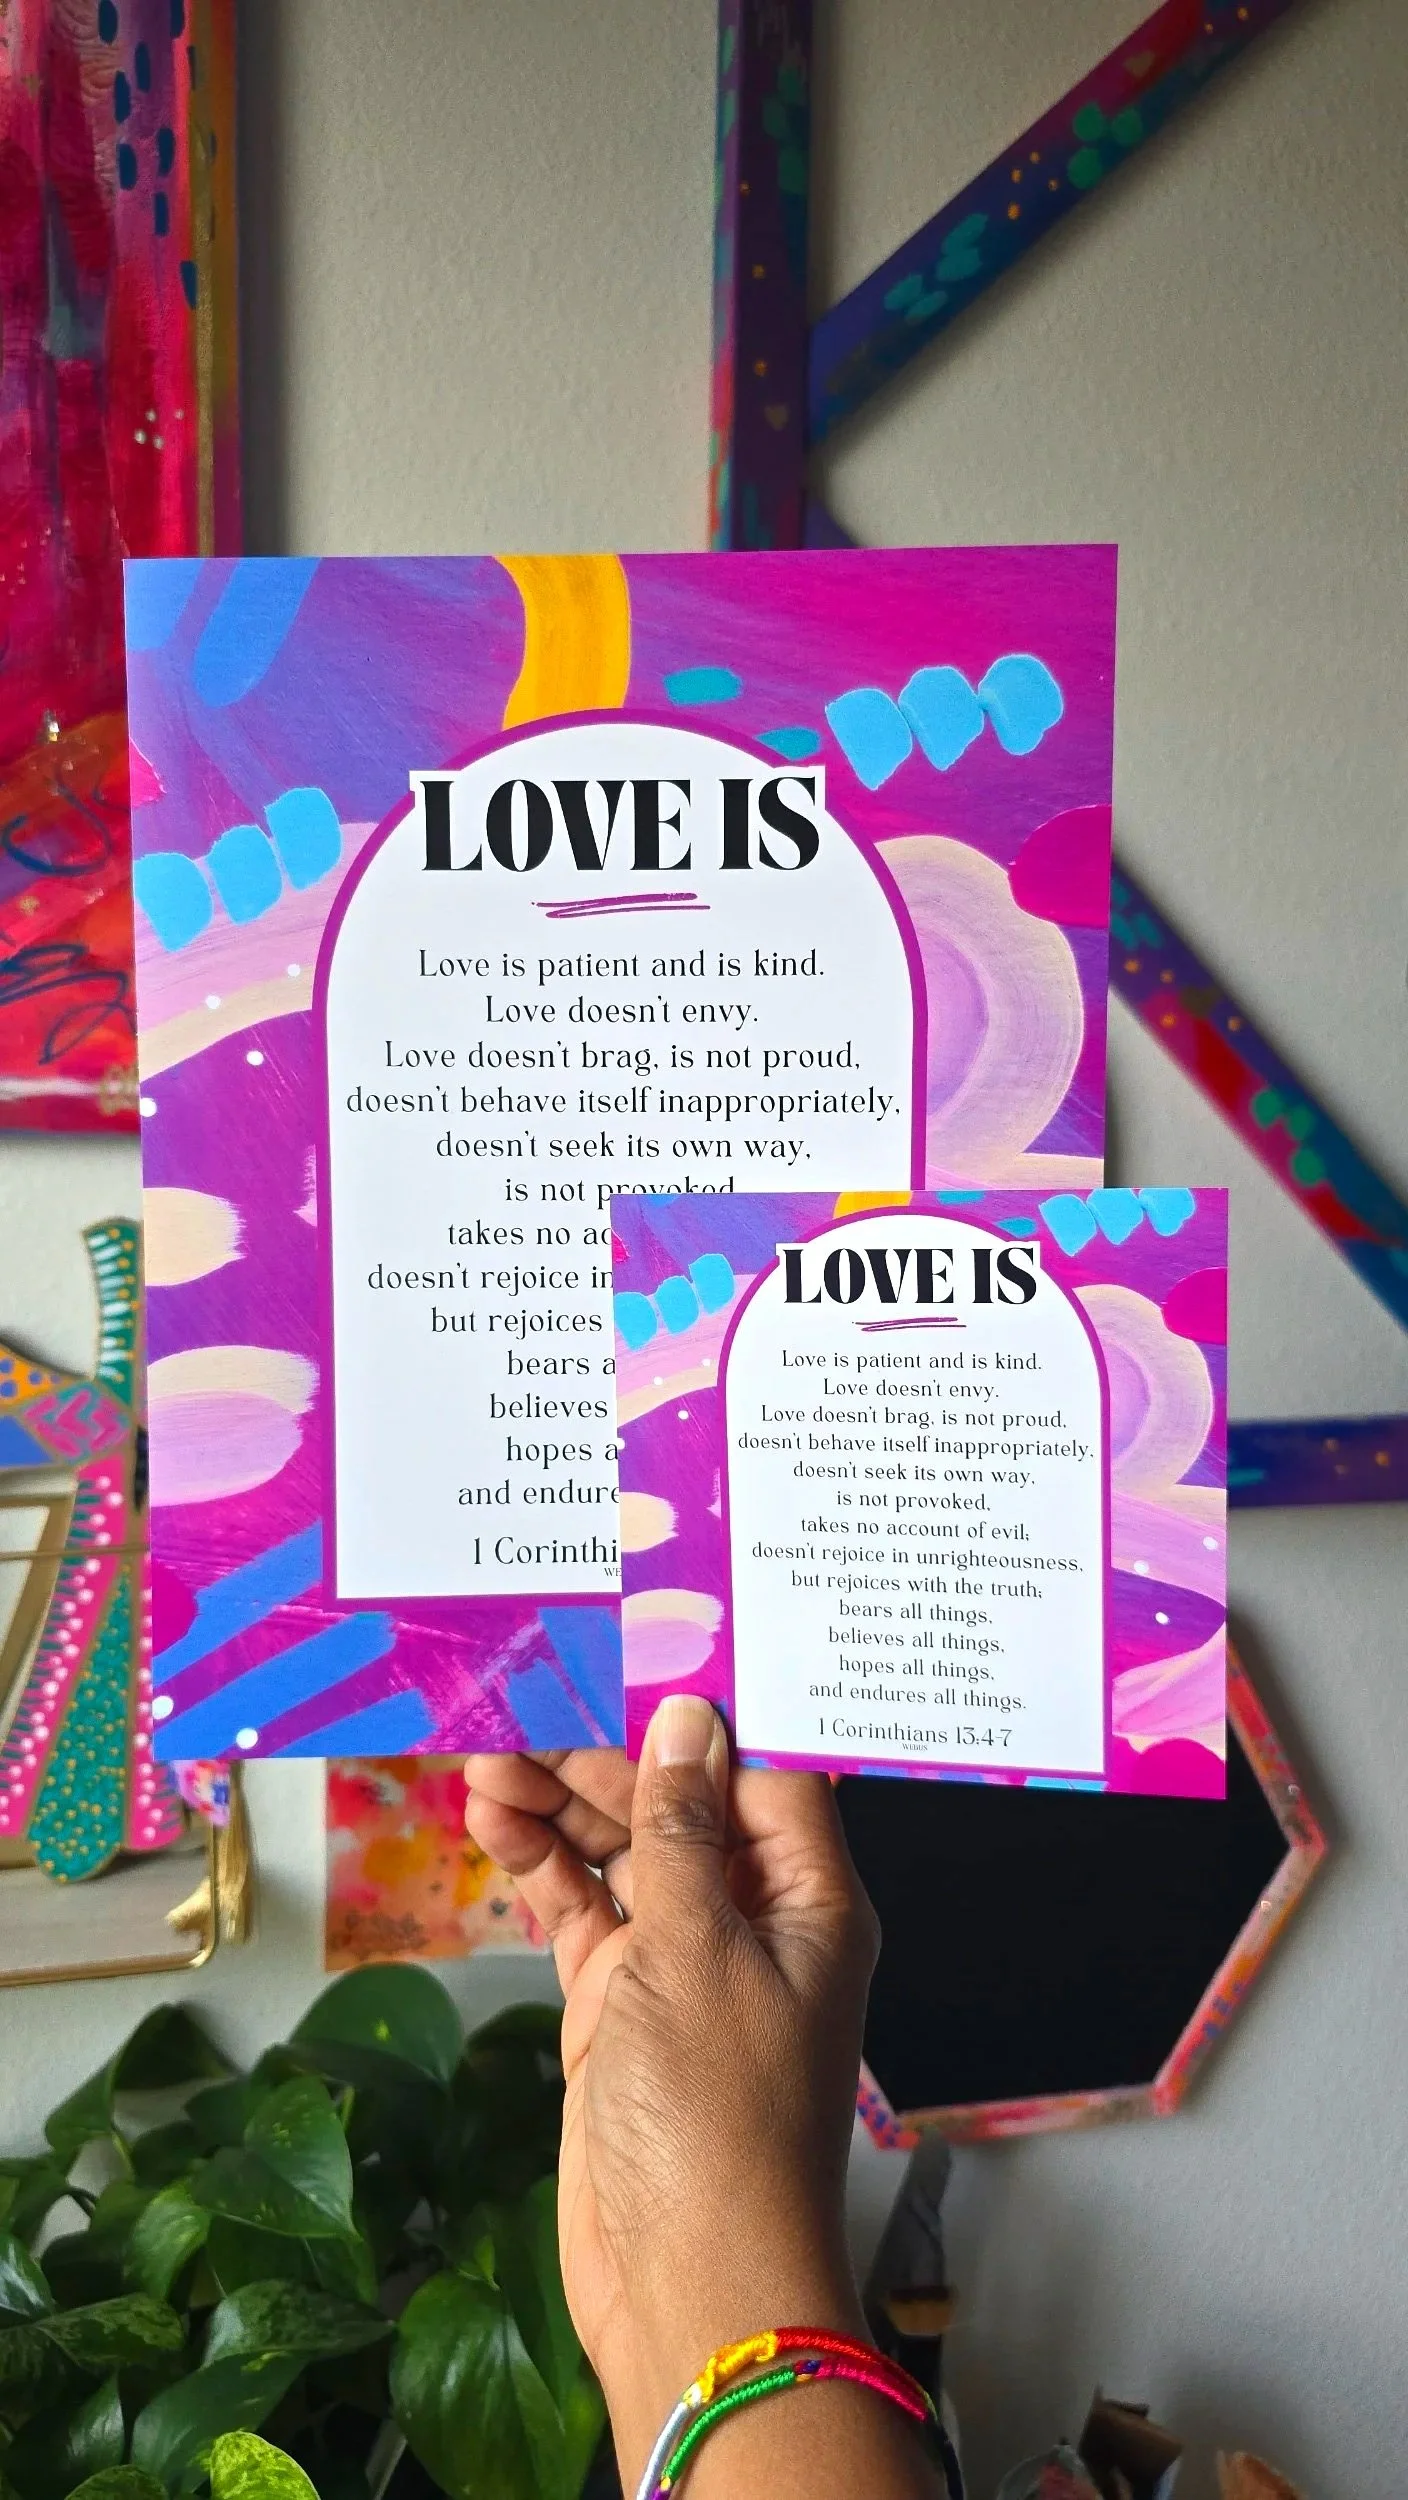 LOVE IS
Love is patient and is kind.
Love doesn't envy.
Love doesn't brag, is not proud,
doesn't behave itself inappropriately,
doesn't seek its own way,
is not provoked
takes no
doesn't rejoice in
but rejoices
bears
believes
hopes
and
1
LOVE IS
Love is patient and is kind.
Love doesn't envy.
Love doesn't brag, is not proud,
doesn't behave itself inappropriately,
doesn't seek its own way,
is not provoked,
takes no account of evil;
doesn't rejoice in unrighteousness,
but rejoices with the truth;
bears all things,
believes all things,
hopes all things,
and endures all things.
1 Corinthians 13:4-7
WEBUS